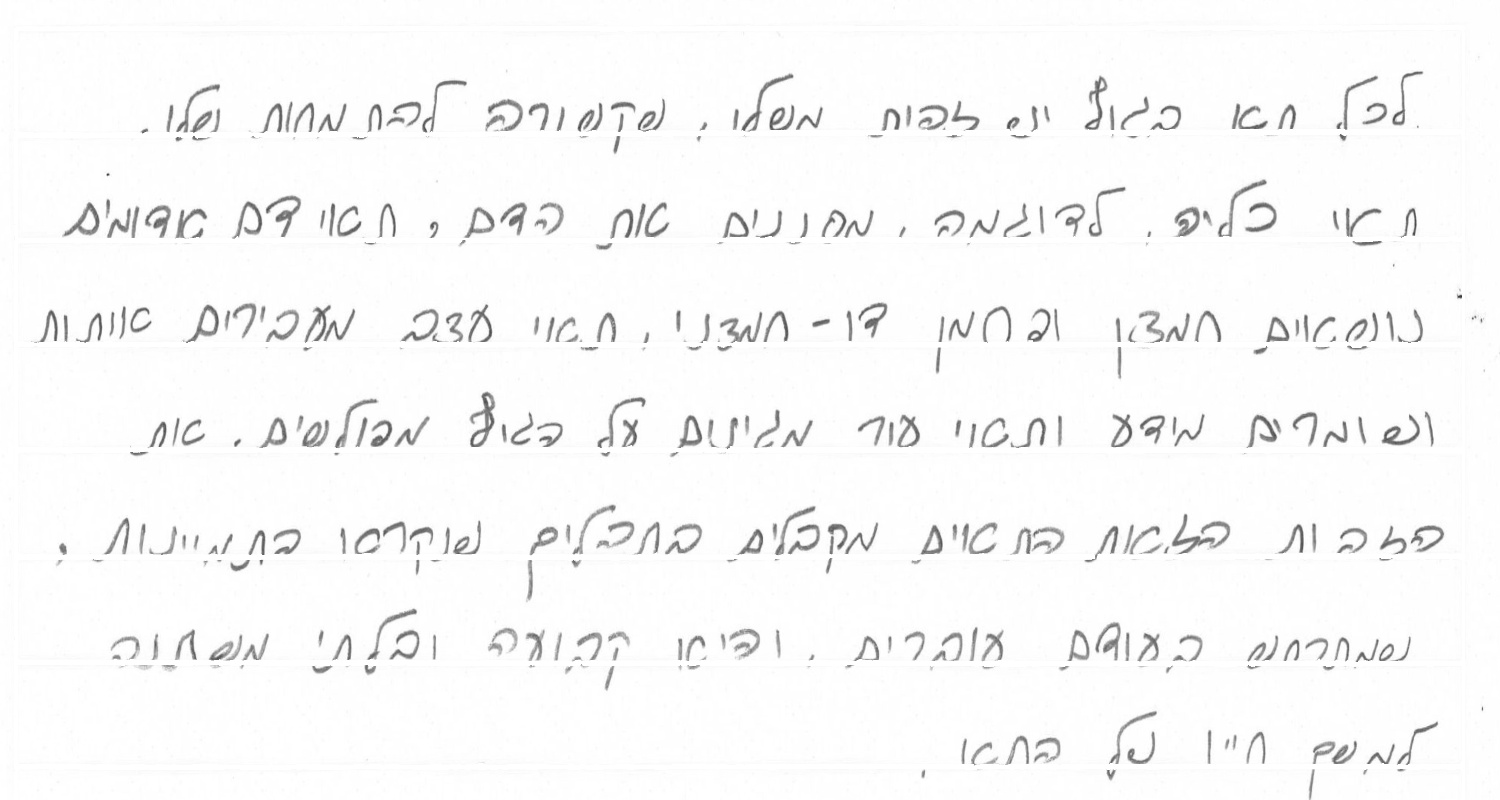 לכל תא בגוף יש זהות משלו, שקשורה להתמחות שלו.
תאי כליה, לדוגמה, מסננים את הדם, תאי דם אדומים
נושאים חמצן ופחמן דו-חמצני, תאי עצב מעבירים אותות
ושומרים מידע ותאי עור מגינים על הגוף מפולשים. את
הזהות הזאת התאים מקבלים בתהליך שנקרא התמיינות,
שמתרחש בעודם עוברים, והיא קבועה ובלתי משתנה
למשך חייו של התא.